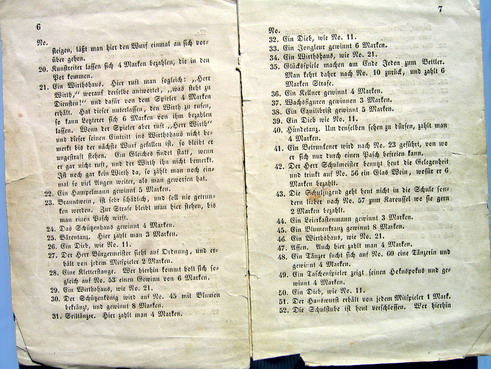 6
No.
steigen, läßt man hier den Wurf einmal an sich vor-
über gehen.
20. Kunstreiter lassen sich 4 Marken bezahlen, die in den
Pot kommen.
21. Ein Wirthshaus. Hier ruft man sogleich: „Herr
Wirth,“ worauf derselbe antwortet, „was steht zu
Diensten!“ und dafür von dem Spieler 4 Marken
erhält. Hat dieser unterlassen, den Wirth zu rufen,
so kann Letzterer sich 6 Marken von ihm bezahlen
lassen. Wenn der Spieler aber ruft „Herr Wirth“
und dieser seinen Eintritt ins Wirthshaus nicht be-
merkt bis der nächste Wurf gefallen ist, so bleibt er
ungestraft stehen. Ein Gleiches findet statt, wenn
er gar nicht ruft, und der Wirth ihn nicht bemerkt.
Ist noch gar kein Wirth da, so zählt man noch ein-
mal so viel Augen weiter, als man geworfen hat.
22. Ein Hampelmann gewinnt 5 Marken.
23. Branntwein, ist sehr schädlich, und soll nie getrun-
ken werden. Zur Strafe bleibt man hier stehen, bis
man einen Pasch wirft.
24. Das Schützenhaus gewinnt 4 Marken.
25. Bärentanz. Hier zahlt man 3 Marken.
26. Ein Dieb, wie No. 11.
27. Der Herr Bürgermeister sieht auf Ordnung, und er-
hält von jedem Mitspieler 2 Marken.
28. Eine Kletterstange. Wer hierhin kommt holt sich so-
gleich auf No. 53 einen Gewinn von 6 Marken.
29. Ein Wirthshaus, wie No. 21.
30. Der Schützenkönig wird auf No. 45 mit Blumen
bekränzt, und gewinnt 8 Marken.
31. Seiltänzer. Hier zahlt man 4 Marken.
7
No.
32. Ein Dieb, wie No. 11.
33. Ein Jongleur gewinnt 6 Marken.
34. Ein Wirthshaus, wie No. 21.
35. Glücksspiele machen am Ende Jeden zum Bettler.
Man kehrt daher nach No. 10 zurück, und zahlt 6
Marken Strafe.
36. Ein Kellner gewinnt 4 Marken.
37. Wachsfiguren gewinnen 3 Marken.
38. Ein Equilibrist gewinnt 5 Marken.
39. Ein Dieb wie No. 11.
40. Hundetanz. Um denselben sehen zu dürfen, zahlt man
4 Marken.
41. Ein Betrunkener wird nach No. 23 geführt, von wo
er sich nur durch einen Pasch befreien kann.
42. Der Herr Schulmeister benutzt heut die Gelegenheit
und trinkt auf No. 56 ein Glas Wein, wofür er 6
Marken bezahlt.
43. Die Schuljugend geht heut nicht in die Schule son-
dern lieber nach No. 57 zum Karussel wo sie gern
2 Marken bezahlt.
44. Ein Leierkastenmann gewinnt 3 Marken.
45. Ein Blumenkranz gewinnt 8 Marken.
46. Ein Wirthshaus, wie No. 21.
47. Affen. Auch hier zahlt man 4 Marken.
48. Ein Tänzer sucht sich auf No. 60 eine Tänzerin und
gewinnt 4 Marken.
49. Ein Taschenspieler zeigt seinen Hokuspokus und ge-
winnt 4 Marken.
50. Ein Dieb, wie No. 11.
51. Der Hanswurst erhält von jedem Mitspieler 1 Mark.
52. Die Schulstube ist heut verschlossen. Wer hierhin